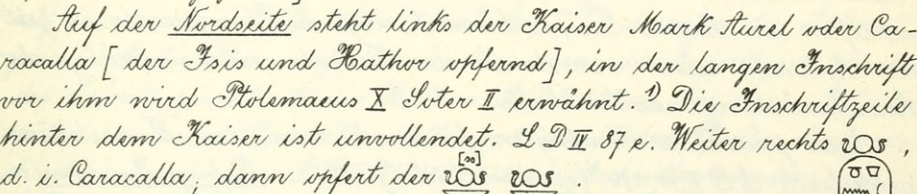 Auf der Nordseite steht links der Kaiser Mark Aurel oder Ca-
racalla [der Isis und Hathor opfernd], in der langen Inschrift
vor ihm wird Ptolemaeus X Soter II erwähnt. 1) Die Inschriftzeile
hinter dem Kaiser ist unvollendet. L D IV 87 e. Weiter rechts ,
d. i. Caracalla; dann opfert der .